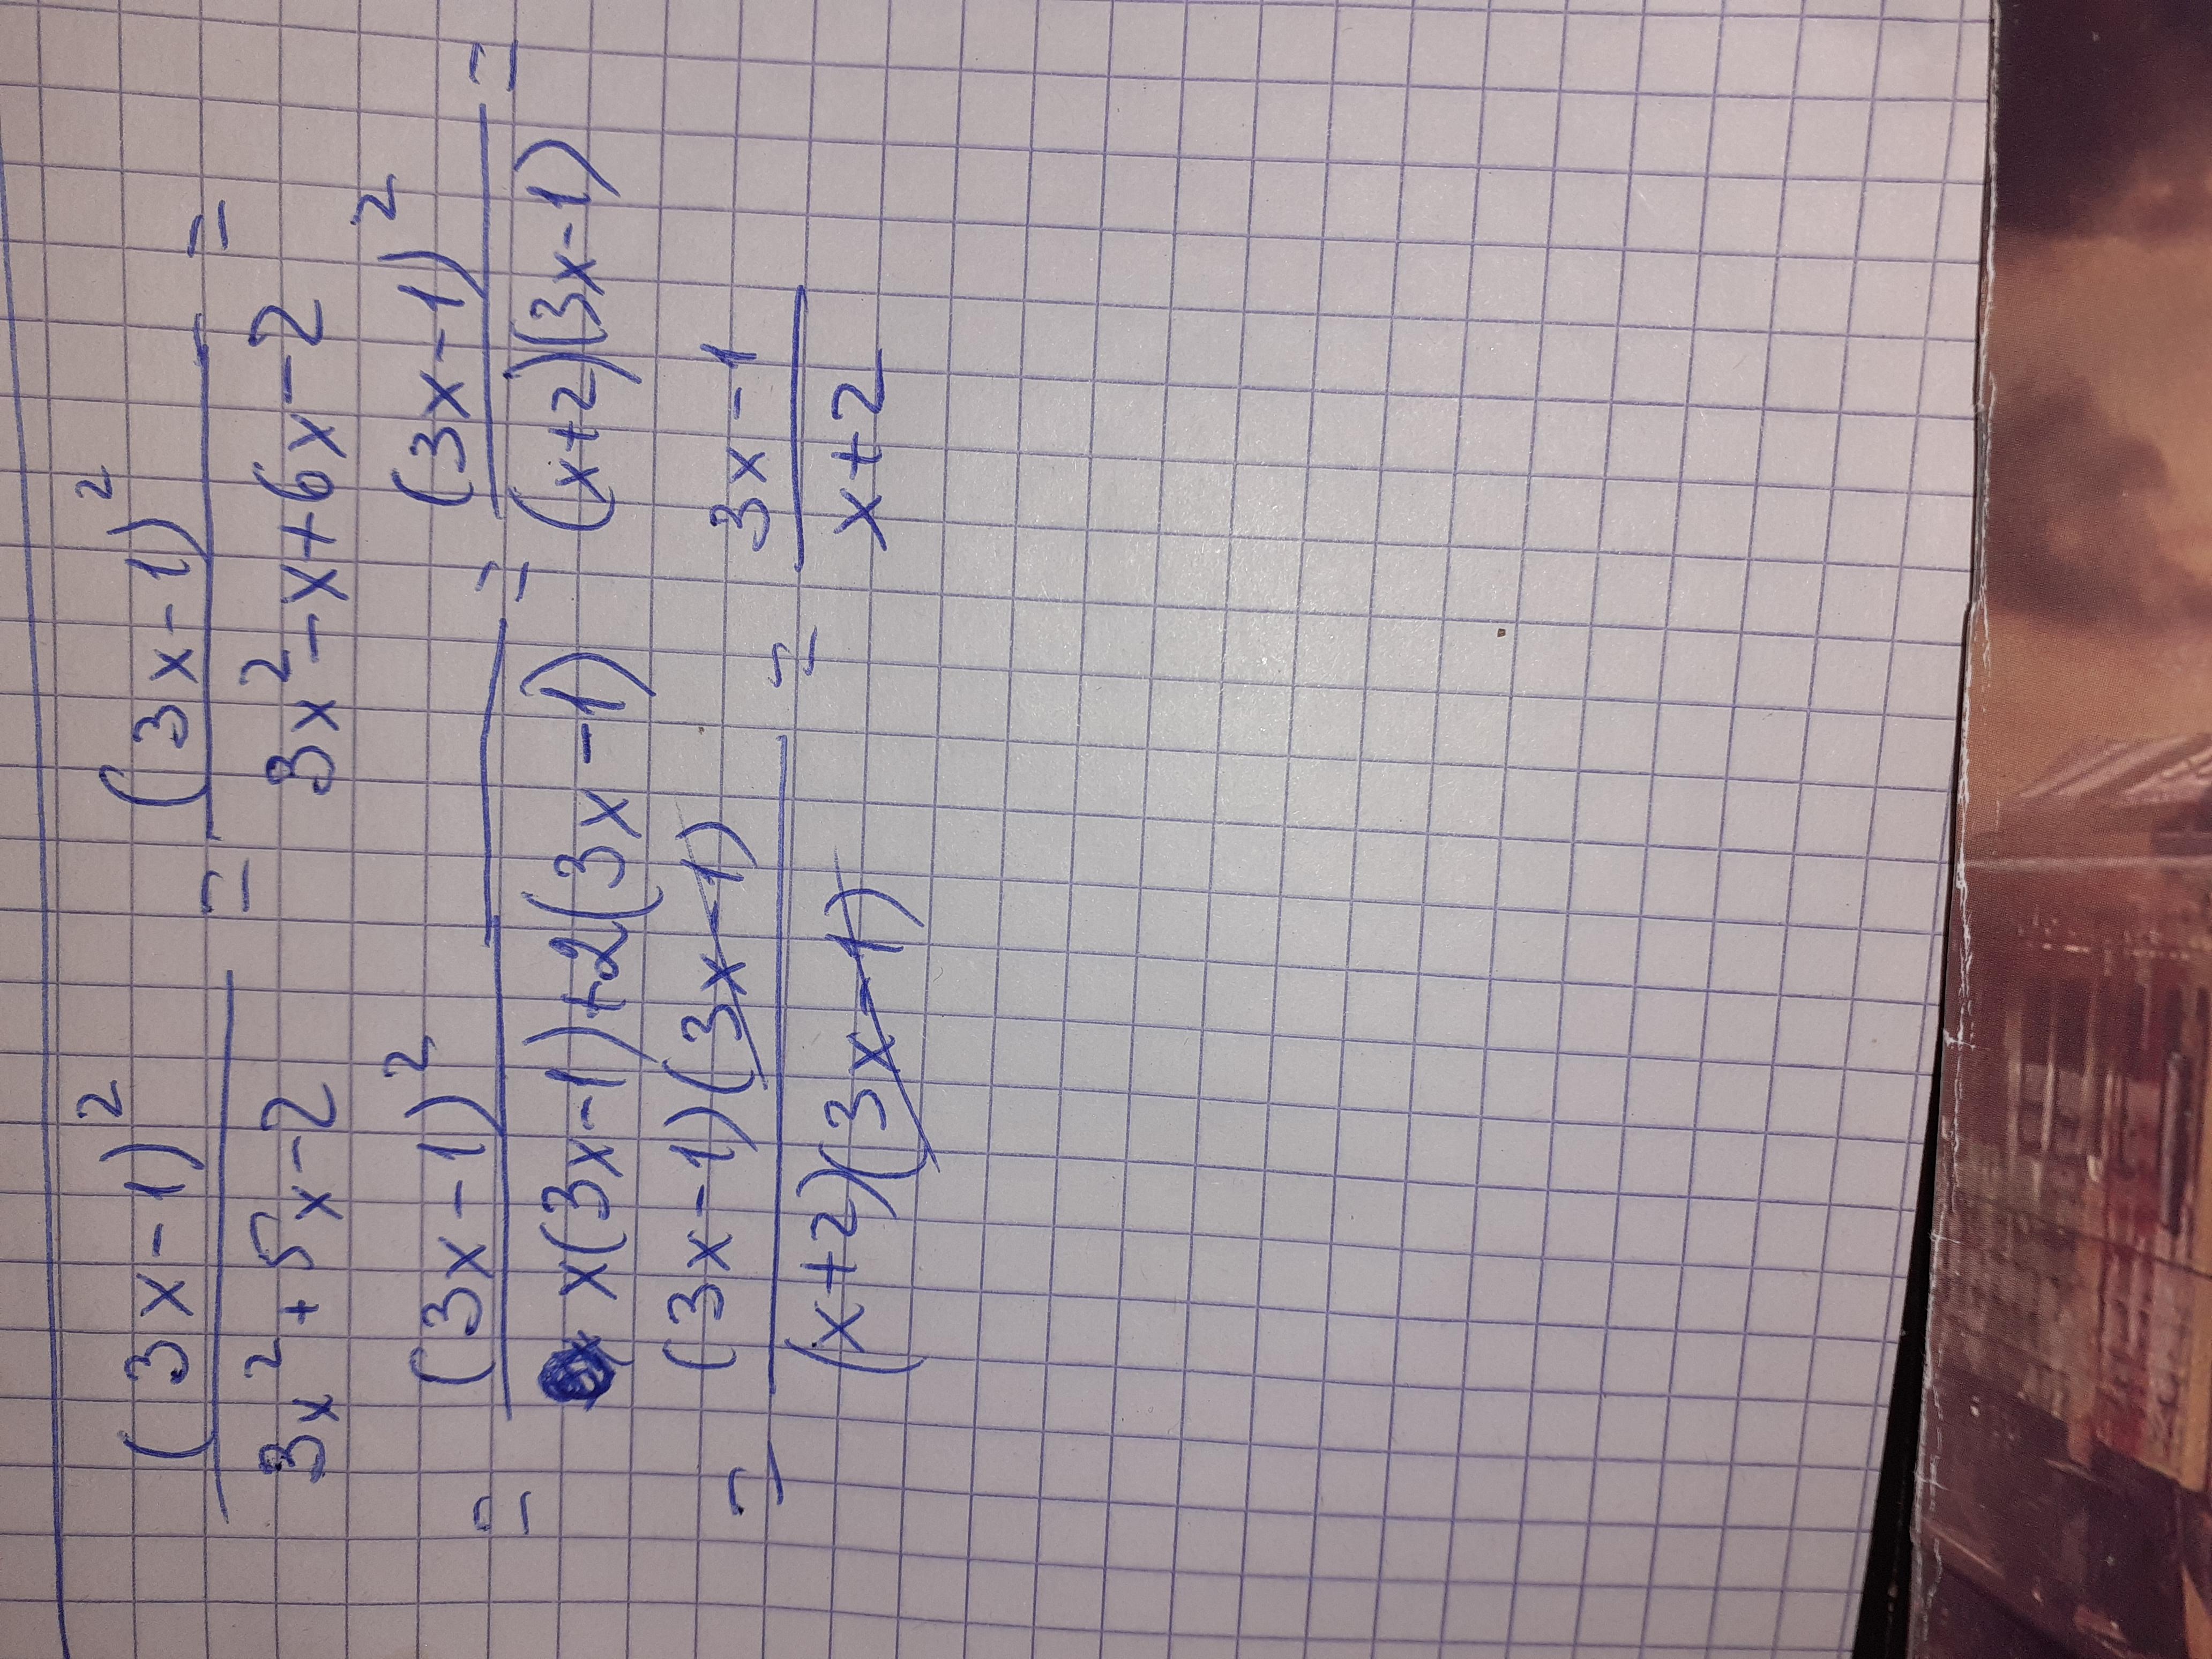 (3x-1)² / 3x²+5x-2 = (3x-1)² / 3x²-x+6x-2 =
= (3x-1)² / x(3x-1)+2(3x-1) = (3x-1)² / (x+2)(3x-1) =
= (3x-1)(3x-1) / (x+2)(3x-1) = 3x-1 / x+2